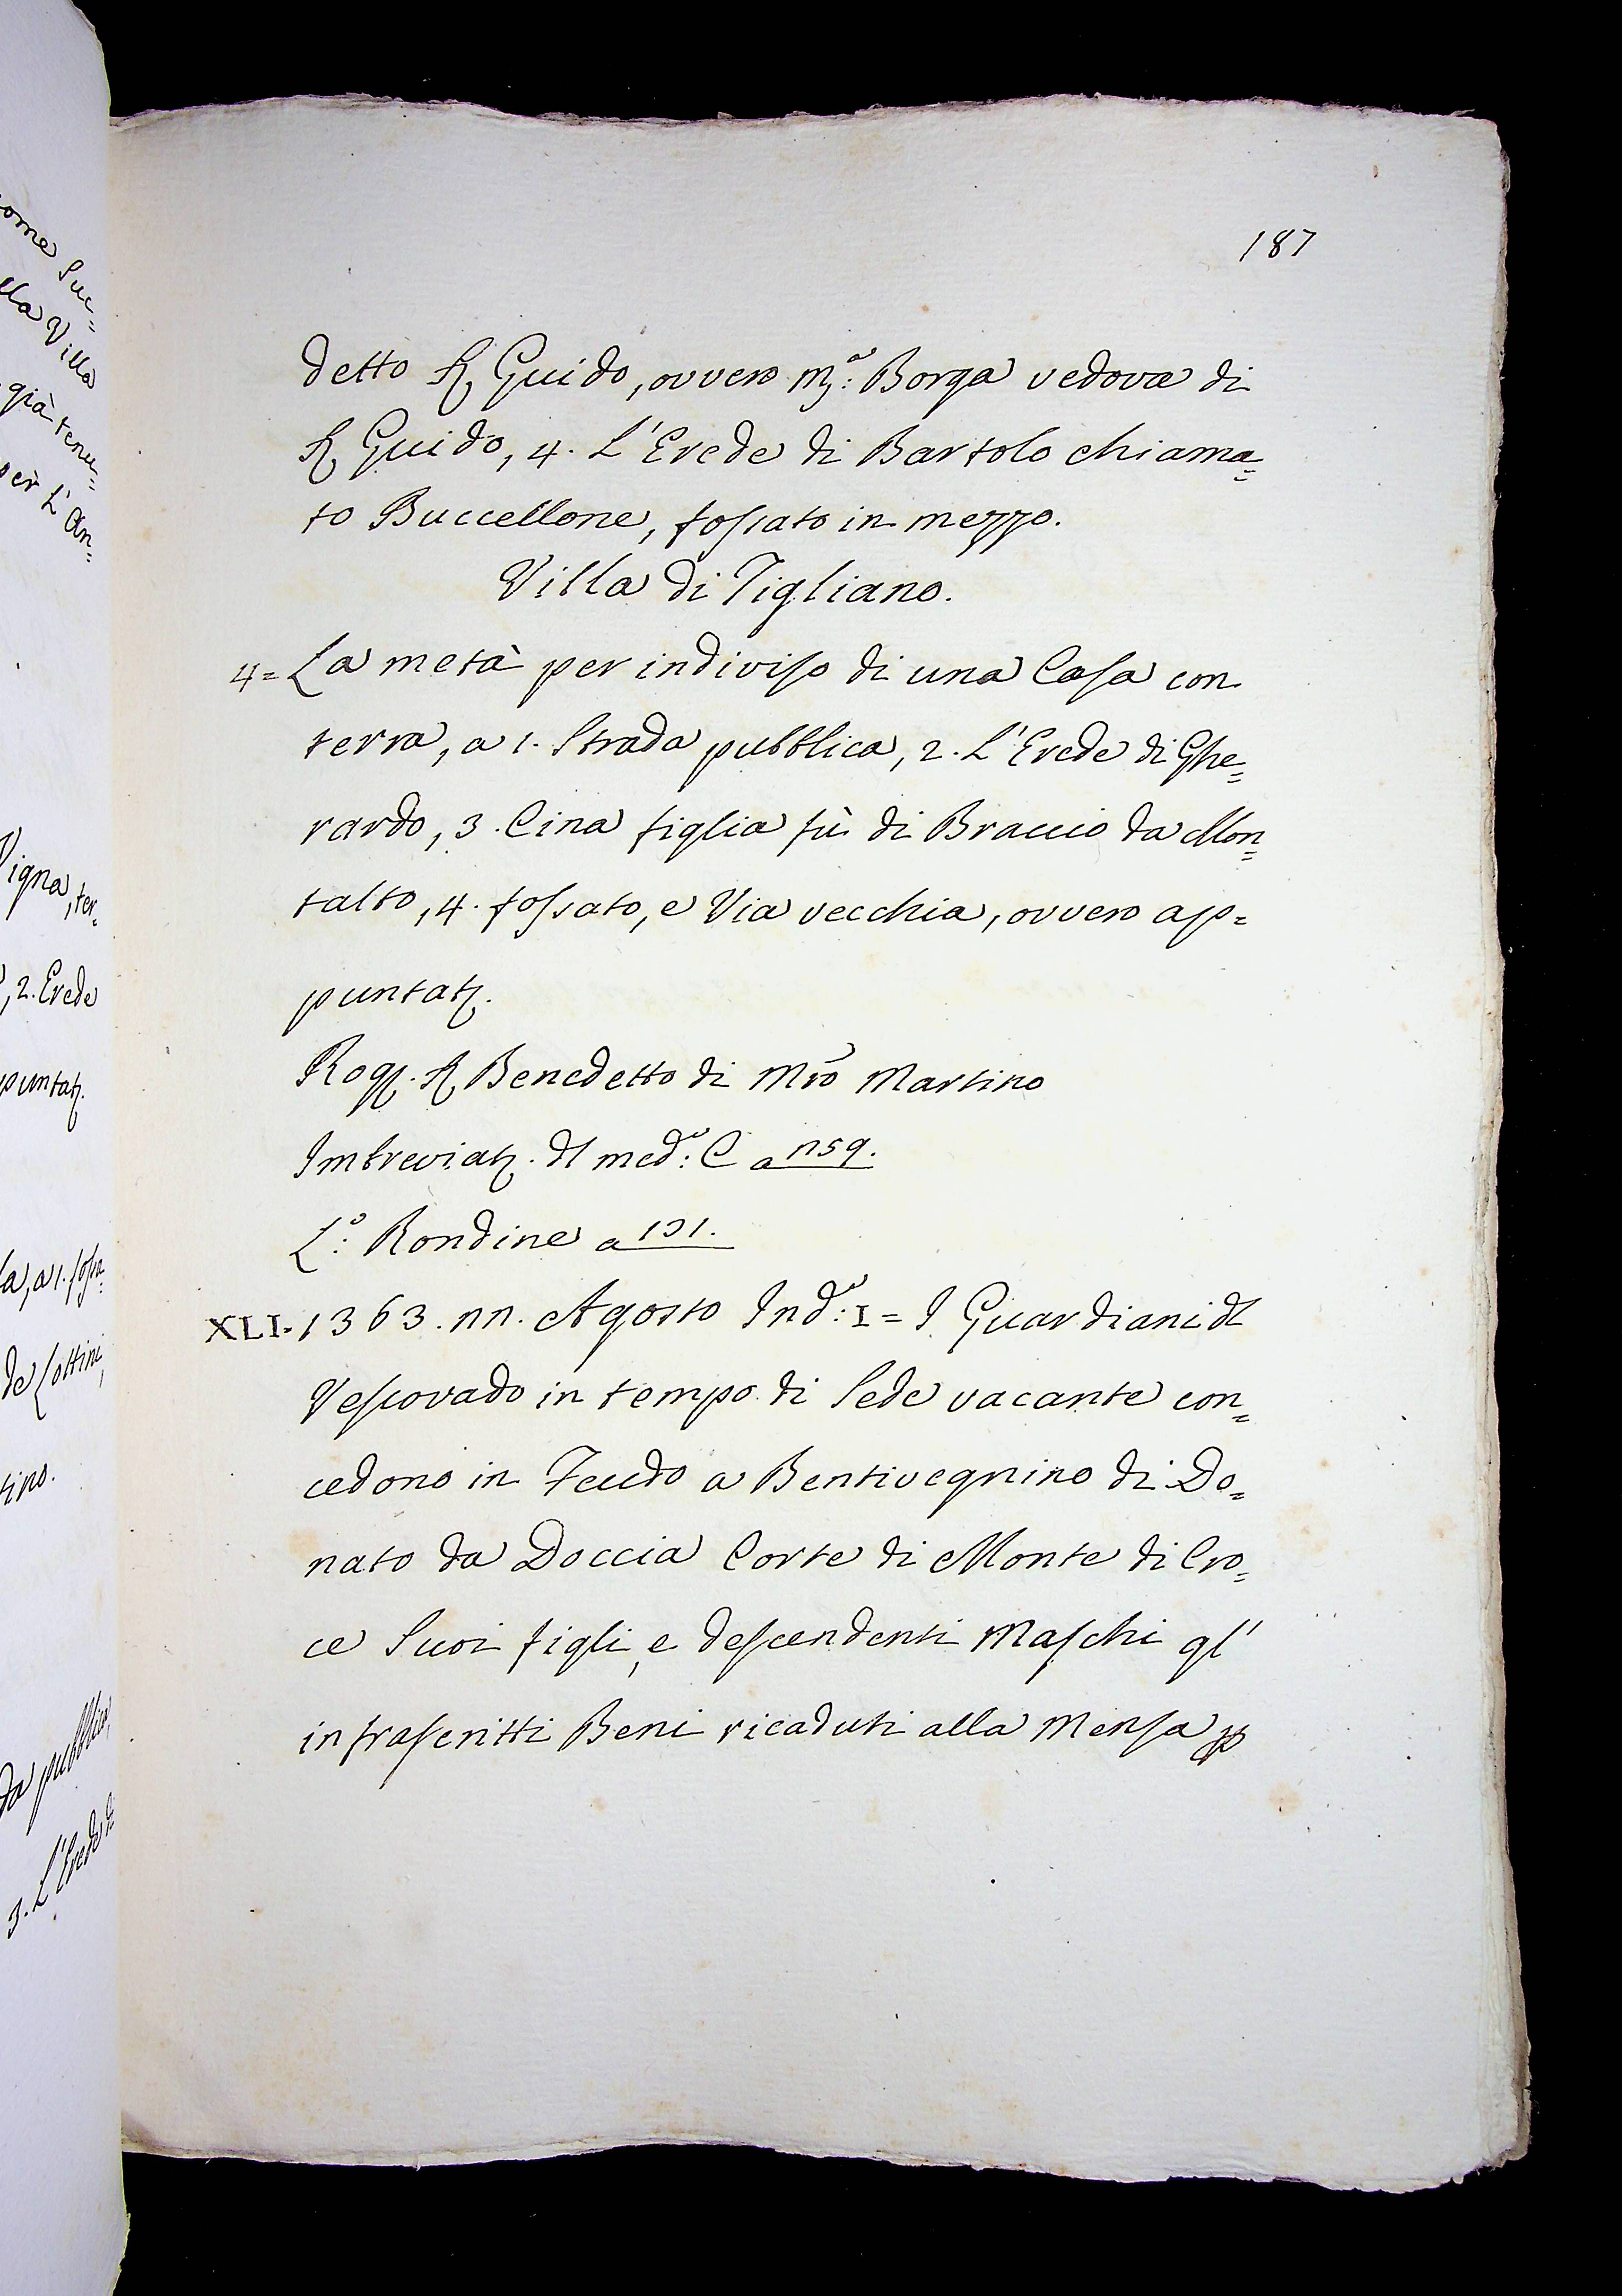 187
detto S. Guido, ovvero Mª: Borga vedova di
S. Guido, 4. L'Erede di Bartolo chiama=
to Buccellone, fossato in mezzo.
Villa di Tigliano.
4= La metà per indiviso di una Casa con
terra, a 1. Strada pubblica, 2. L'Erede di Ghe=
rardo, 3. Cina figlia fù di Braccio da Mon=
talto, 4. fossato, e Via vecchia, ovvero ap=
puntat.
Rog. S. Benedetto di Mrõ Martino
Imbreviat. dl medº: C a 159.
Lº: Rondine a 131.
XLI. 1363. 11. Agosto Indª: I = I Guardiani dl
Vescovado in tempo di Sede vacante con=
cedono in Feudo a Bentivegnino di Do=
nato da Doccia Corte di Monte di Cro=
ce Suoi figli, e descendenti Maschi gl'
infrascritti Beni ricaduti alla Mensa p
ome Suc=
lla Villa
già tenu=
per L'An=
Vigna, ter=
, 2. Erede
puntat.
la, a 1. fossa=
de Cottini,
tino.
da pubblica,
3. L'Erede